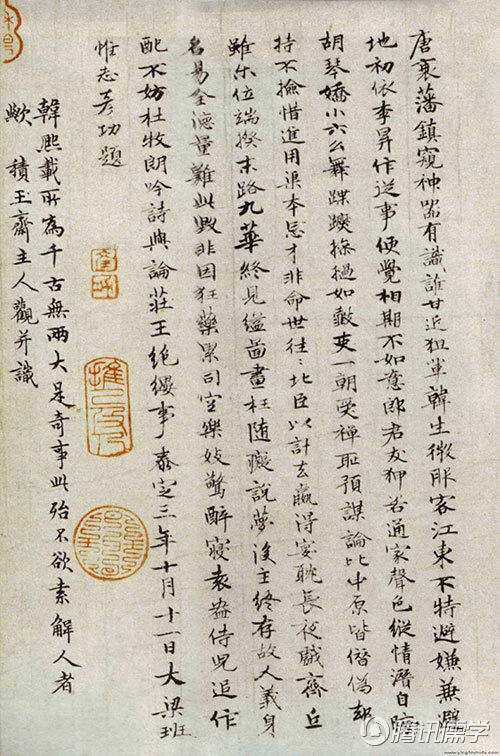 唐衰藩鎮窺神器有識誰甘近狙軰韓生微服客江東不特避嫌兼避
地初依李昇作逆事便覺相期不如意郎君友狎若通家聲色縱情潛自晦
胡琴嬌小六么舞蹀躞摻撾如鼓吏一朝受禪耻預謀論比中原皆僭偽却
持不撿惜進用渠本忌才非命世往〻北臣以計去贏得宴耽長夜戲齊丘
雖尔位端揆末路九華終見縊啚畫枉随癡說夢後主終存故人義身
名易全德量難此毀非因狂藥累司空樂妓驚醉寢袁盎侍兒追作
配不妨杜牧朗吟詩與論莊王絶纓事泰定三年十月十一日大梁班
惟志彥功題
韓熙載所為千古無兩大是奇事此殆不欲索解人者
歟積玉齋主人觀并識
腾讯儒学